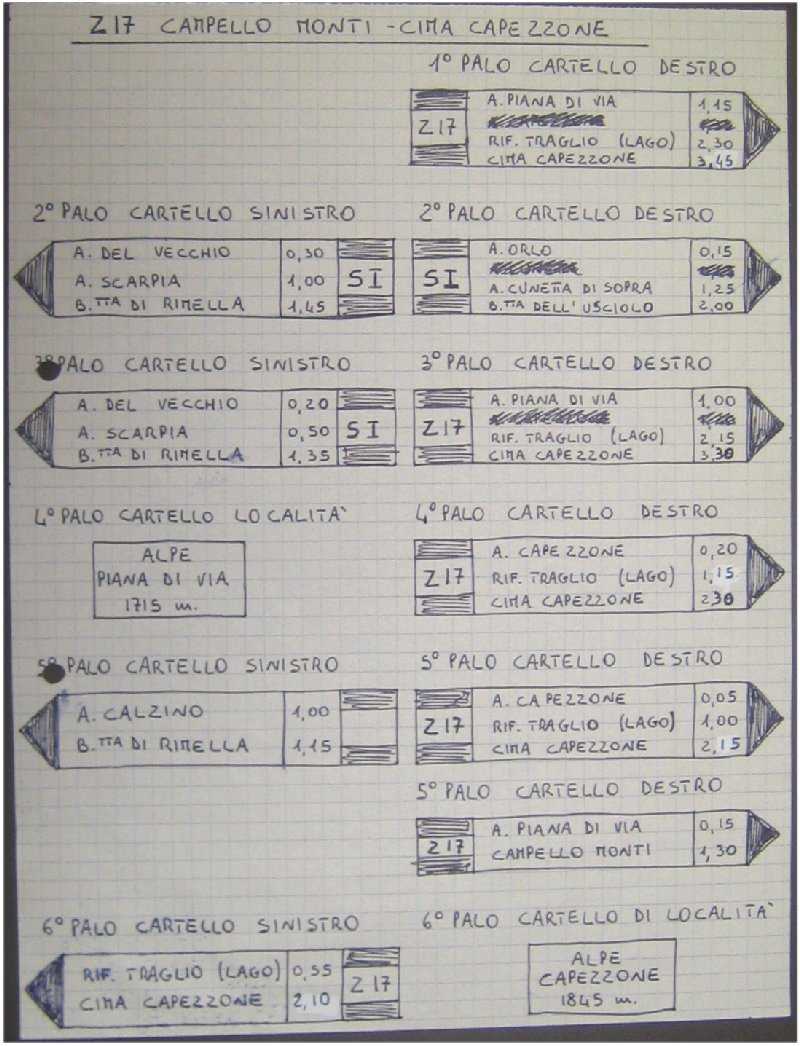 Z17 CAMPELLO MONTI - CIMA CAPEZZONE
1° PALO CARTELLO DESTRO
Z17
A. PIANA DI VIA 1,15
RIF. TRAGLIO (LAGO) 2,30
CIMA CAPEZZONE 3,45
2° PALO CARTELLO SINISTRO
A. DEL VECCHIO 0,30
A. SCARPIA 1,00
B.TTA DI RIMELLA 1,45
SI
2° PALO CARTELLO DESTRO
SI
A. ORLO 0,15
A. CUNETTA DI SOPRA 1,25
B.TTA DELL'USCIOLO 2,00
3° PALO CARTELLO SINISTRO
A. DEL VECCHIO 0,20
A. SCARPIA 0,50
B.TTA DI RIMELLA 1,35
SI
3° PALO CARTELLO DESTRO
Z17
A. PIANA DI VIA 1,00
RIF. TRAGLIO (LAGO) 2,15
CIMA CAPEZZONE 3,30
4° PALO CARTELLO LOCALITA'
ALPE
PIANA DI VIA
1715 m.
4° PALO CARTELLO DESTRO
Z17
A. CAPEZZONE 0,20
RIF. TRAGLIO (LAGO) 1,15
CIMA CAPEZZONE 2,30
5° PALO CARTELLO SINISTRO
A. CALZINO 1,00
B.TTA DI RIMELLA 1,15
5° PALO CARTELLO DESTRO
Z17
A. CAPEZZONE 0,05
RIF. TRAGLIO (LAGO) 1,00
CIMA CAPEZZONE 2,15
5° PALO CARTELLO DESTRO
Z17
A. PIANA DI VIA 0,15
CAMPELLO MONTI 1,30
6° PALO CARTELLO SINISTRO
RIF. TRAGLIO (LAGO) 0,55
CIMA CAPEZZONE 2,10
Z17
6° PALO CARTELLO DI LOCALITA'
ALPE
CAPEZZONE
1845 m.